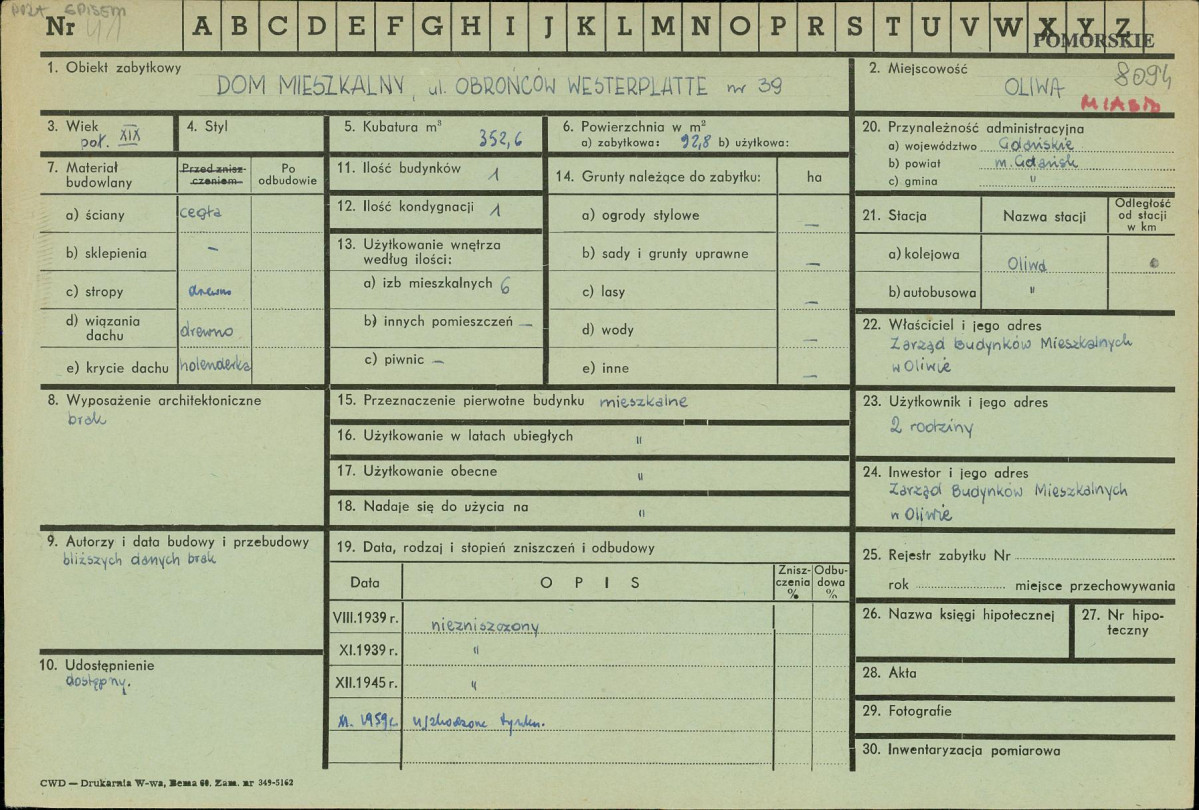 POZA SPISEM
Nr A B C D E F G H I J K L M N O P R S T U V W X Y Z
POMORSKIE
1. Obiekt zabytkowy
DOM MIESZKALNY, ul. OBROŃCÓW WESTERPLATTE nr 39
2. Miejscowość
8094
OLIWA
MIASTO
3. Wiek
poł. XIX
4. Styl
5. Kubatura m³
352,6
6. Powierzchnia w m²
a) zabytkowa: 92,8 b) użytkowa:
20. Przynależność administracyjna
a) województwo Gdańskie
b) powiat m. Gdańsk
c) gmina "
7. Materiał budowlany
Przed zniszczeniem
Po odbudowie
a) ściany cegła
b) sklepienia –
c) stropy drewno
d) wiązania dachu drewno
e) krycie dachu holenderka
11. Ilość budynków 1
12. Ilość kondygnacji 1
13. Użytkowanie wnętrza według ilości:
a) izb mieszkalnych 6
b) innych pomieszczeń –
c) piwnic –
14. Grunty należące do zabytku: ha
a) ogrody stylowe –
b) sady i grunty uprawne –
c) lasy –
d) wody –
e) inne –
21. Stacja Nazwa stacji Odległość od stacji w km
a) kolejowa Oliwa
b) autobusowa "
22. Właściciel i jego adres
Zarząd Budynków Mieszkalnych
w Oliwie
8. Wyposażenie architektoniczne
brak
15. Przeznaczenie pierwotne budynku mieszkalne
16. Użytkowanie w latach ubiegłych "
17. Użytkowanie obecne "
18. Nadaje się do użycia na "
23. Użytkownik i jego adres
2 rodziny
24. Inwestor i jego adres
Zarząd Budynków Mieszkalnych
w Oliwie
9. Autorzy i data budowy i przebudowy
bliższych danych brak
10. Udostępnienie
dostępny.
19. Data, rodzaj i stopień zniszczeń i odbudowy
Data OPIS Zniszczenia % Odbudowa %
VIII.1939 r. niezniszczony
XI.1939 r. "
XII.1945 r. "
1959 r. uszkodzone tynki.
25. Rejestr zabytku Nr
rok miejsce przechowywania
26. Nazwa księgi hipotecznej
27. Nr hipoteczny
28. Akta
29. Fotografie
30. Inwentaryzacja pomiarowa
CWD — Drukarnia W-wa, Bema 60. Zam. nr 349-5162